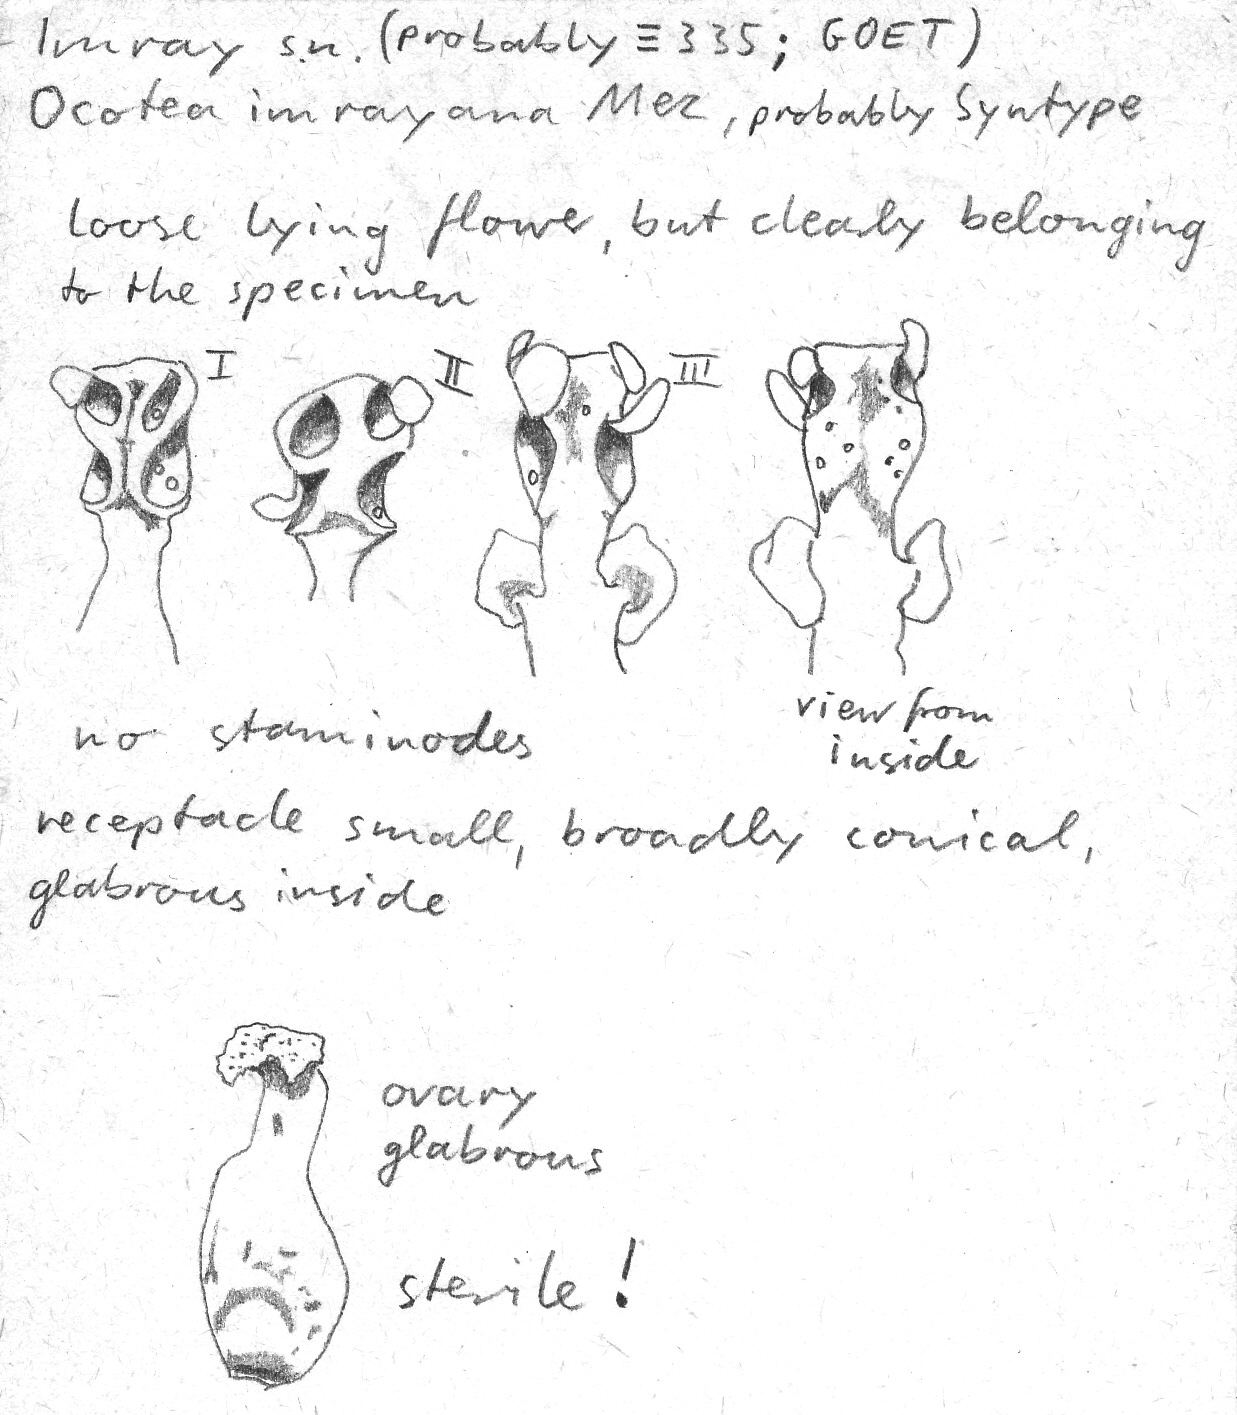 Imray s.n. (probably ≡ 335; GOET)
Ocotea imrayana Mez, probably Syntype
loose lying flower, but clearly belonging
to the specimen
I
II
III
view from
inside
no staminodes
receptacle small, broadly conical,
glabrous inside
ovary
glabrous
sterile!